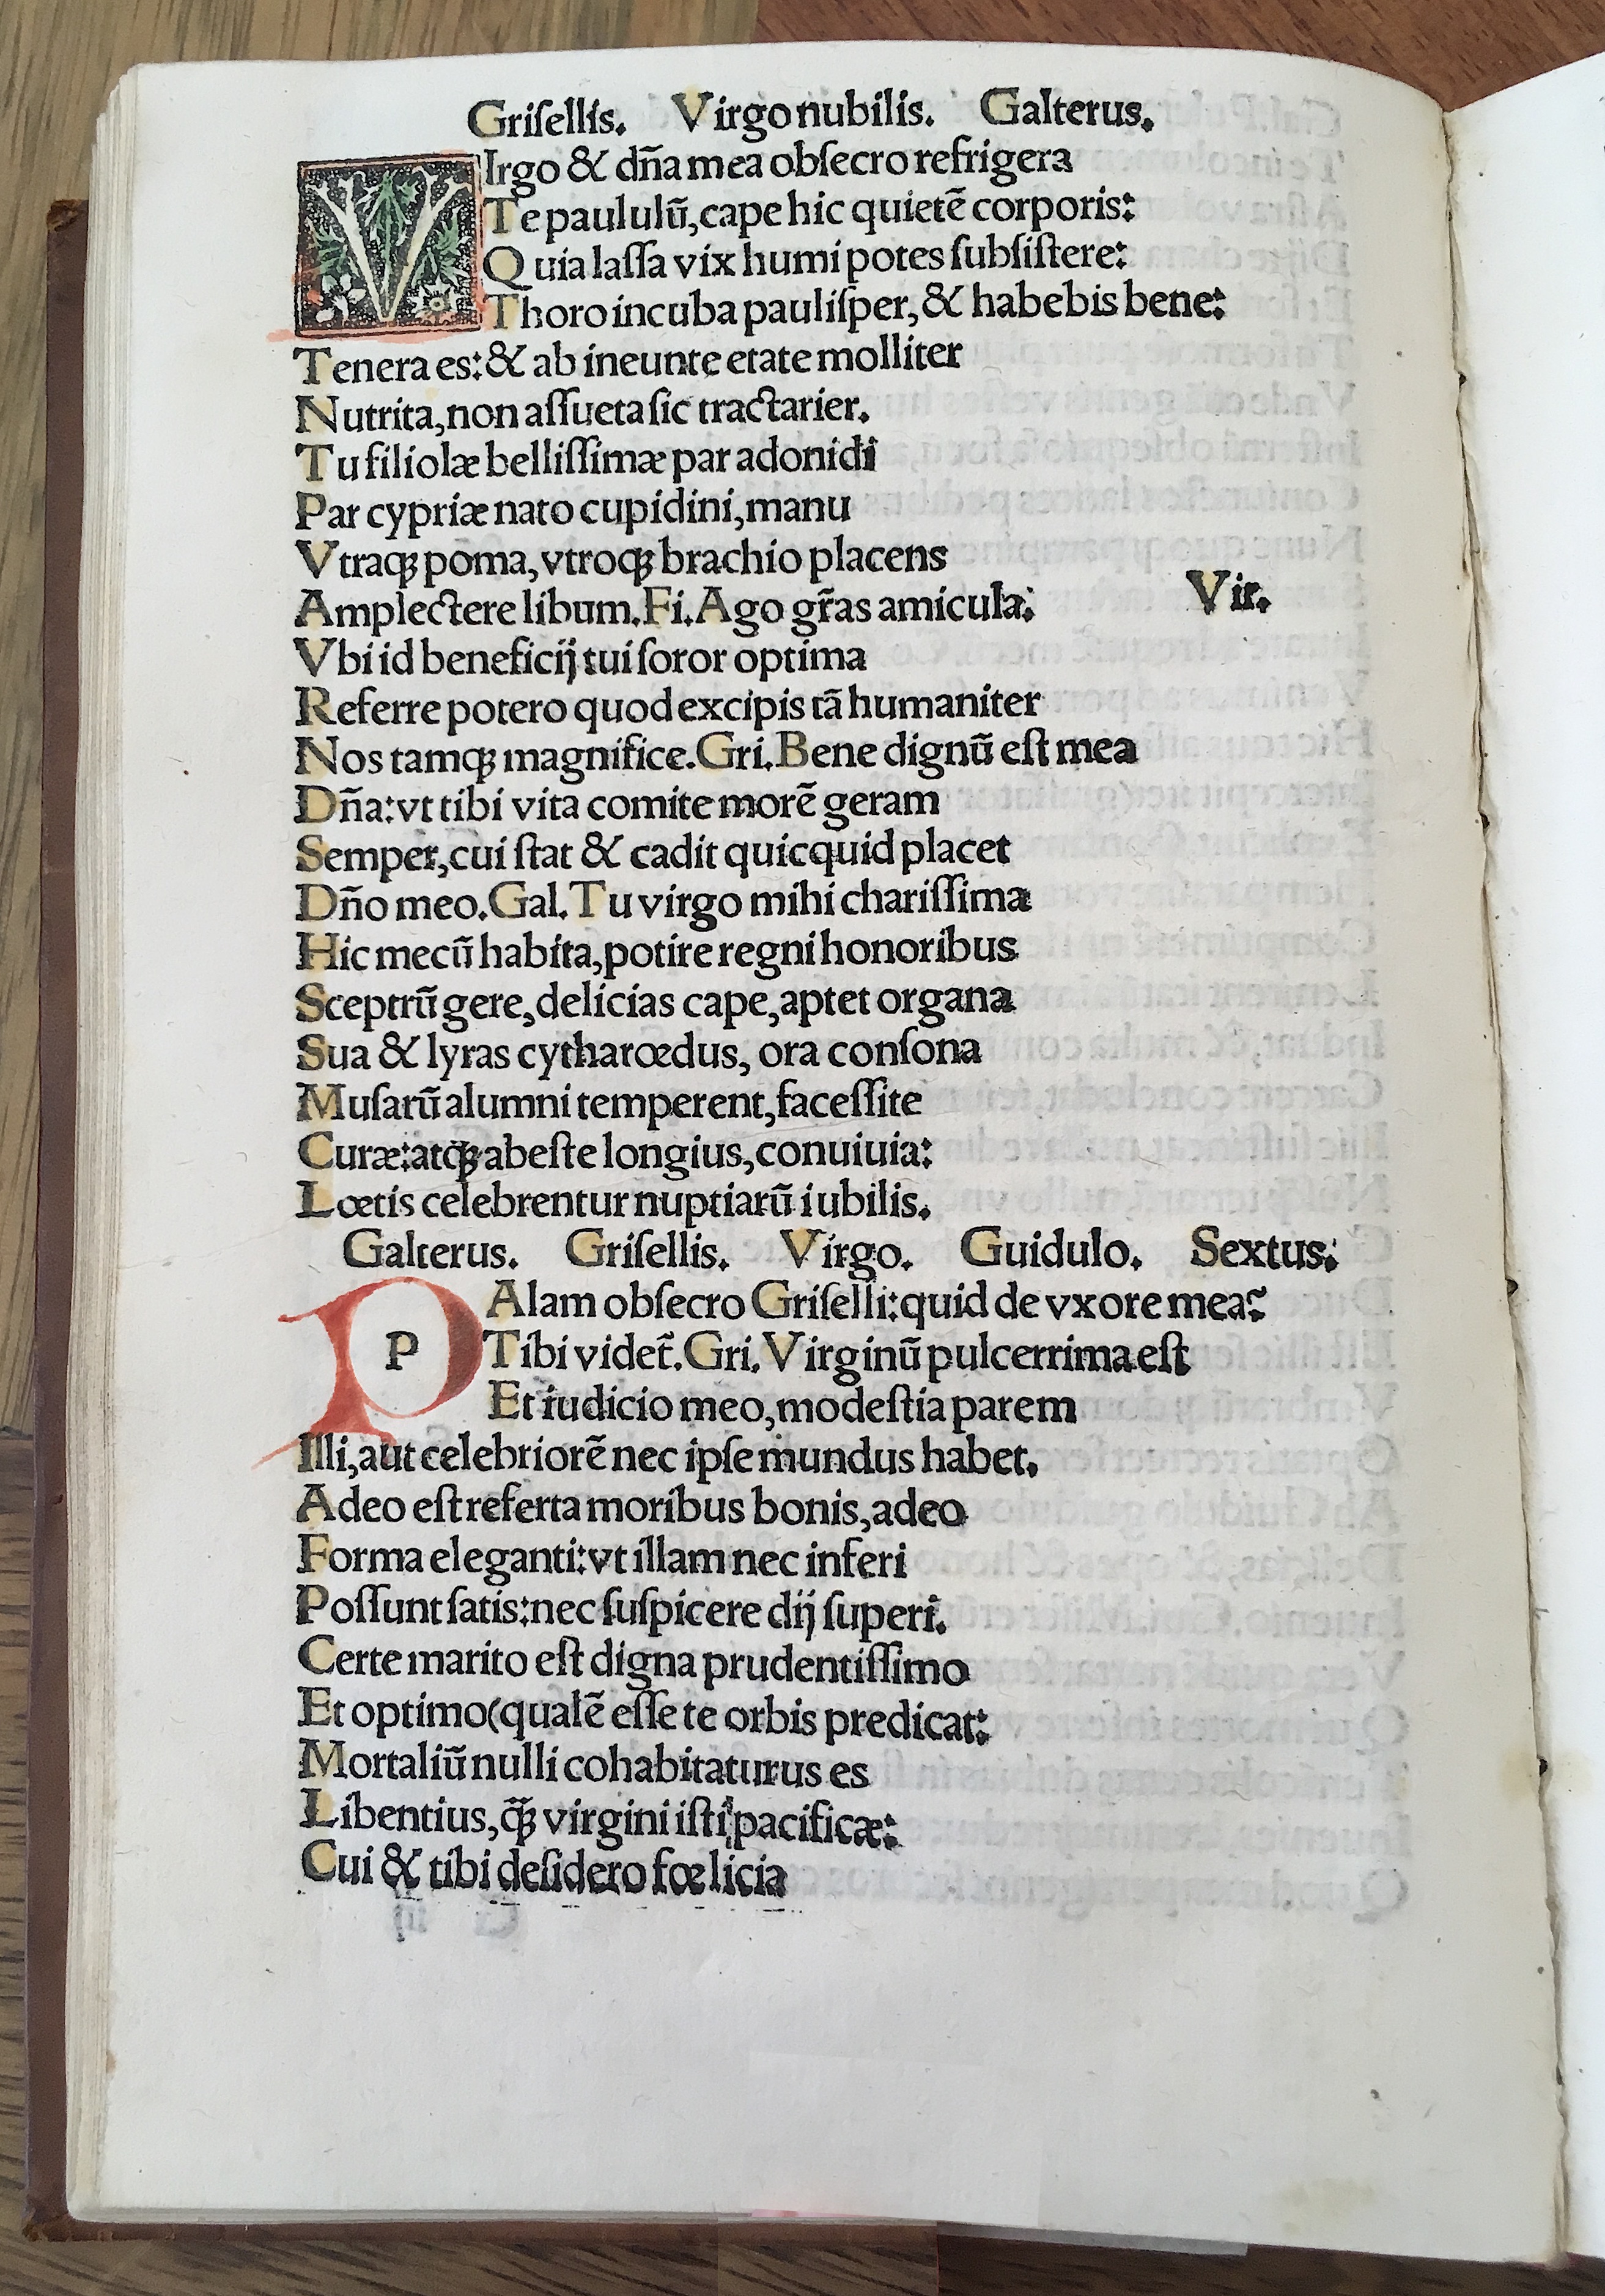 Griſellis. Virgo nubilis. Galterus.
VIrgo & dn̄a mea obſecro refrigera
Te paululū, cape hic quietē corporis:
Quia laſſa vix humi potes ſubſiſtere:
Thoro incuba pauliſper, & habebis bene:
Tenera es: & ab ineunte etate molliter
Nutrita, non aſſueta ſic tractarier.
Tu filiolæ belliſſimæ par adonidi
Par cypriæ nato cupidini, manu
Vtraqꝫ poma, vtroqꝫ brachio placens
Amplectere libum. Fi. Ago gr̄as amicula: Vir.
Vbi id beneficij tui ſoror optima
Referre potero quod excipis tā humaniter
Nos tamqꝫ magnifice. Gri. Bene dignū eſt mea
Dn̄a: vt tibi vita comite morē geram
Semper, cui ſtat & cadit quicquid placet
Dn̄o meo. Gal. Tu virgo mihi chariſſima
Hic mecū habita, potire regni honoribus
Sceptrū gere, delicias cape, aptet organa
Sua & lyras cytharœdus, ora conſona
Muſarū alumni temperent, faceſſite
Curæ: atqꝫ abeſte longius, conuiuia:
Lœtis celebrentur nuptiarū iubilis.
Galterus. Griſellis. Virgo. Guidulo. Sextus:
P Alam obſecro Griſelli: quid de vxore mea?
Tibi videt̄. Gri. Virginū pulcerrima eſt
Et iudicio meo, modeſtia parem
Illi, aut celebriorē nec ipſe mundus habet.
Adeo eſt referta moribus bonis, adeo
Forma eleganti: vt illam nec inferi
Poſſunt ſatis: nec ſuſpicere dij ſuperi.
Certe marito eſt digna prudentiſſimo
Et optimo (qualē eſſe te orbis predicat:
Mortaliū nulli cohabitaturus es
Libentius, qꝫ̄ virgini iſti pacificæ:
Cui & tibi deſidero fœlicia